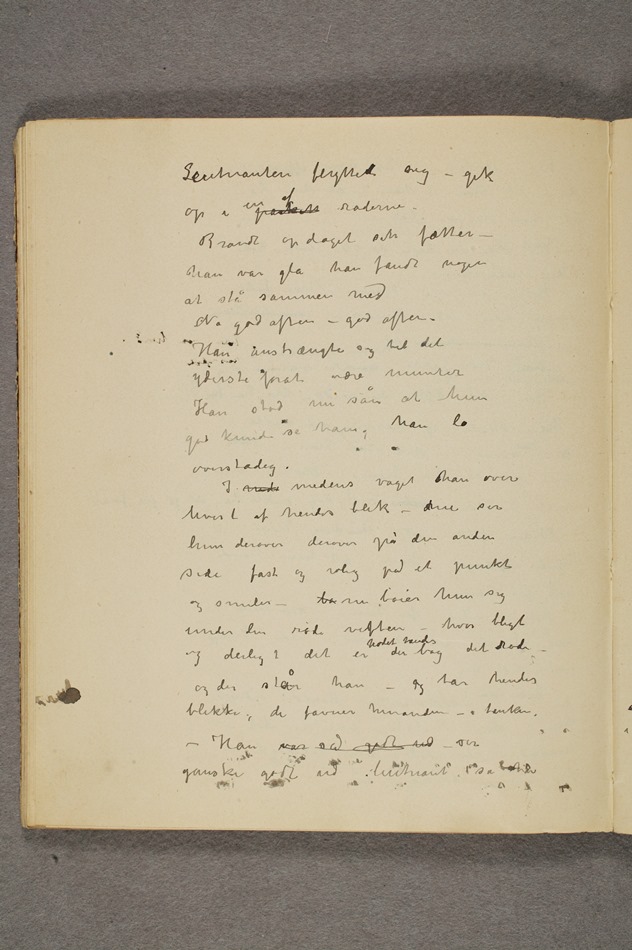 Leutnanten flytted sig – gik
op i en af raderne –
Brandt opdaget sin fætter –
han var gla han fandt nogen
at stå sammen med
Na god aften – god aften –
Han anstrængte sig til det
yderste forat være munter
Han stod nu sån at hun
god kunde se ham, han lo
overstadig.
I medens vaget han over
hvert af hendes blik – nu ser
hun derover derover på den anden
side fast og rolig på et punkt
og smiler – nu bøier hun sig
under den røde viften – hvor blegt
og deiligt det er hodet hendes der bag det røde –
og der står han – og tar hendes
blikke, de favner hinanden –
– Han ser
ganske godt ud leutnant sa